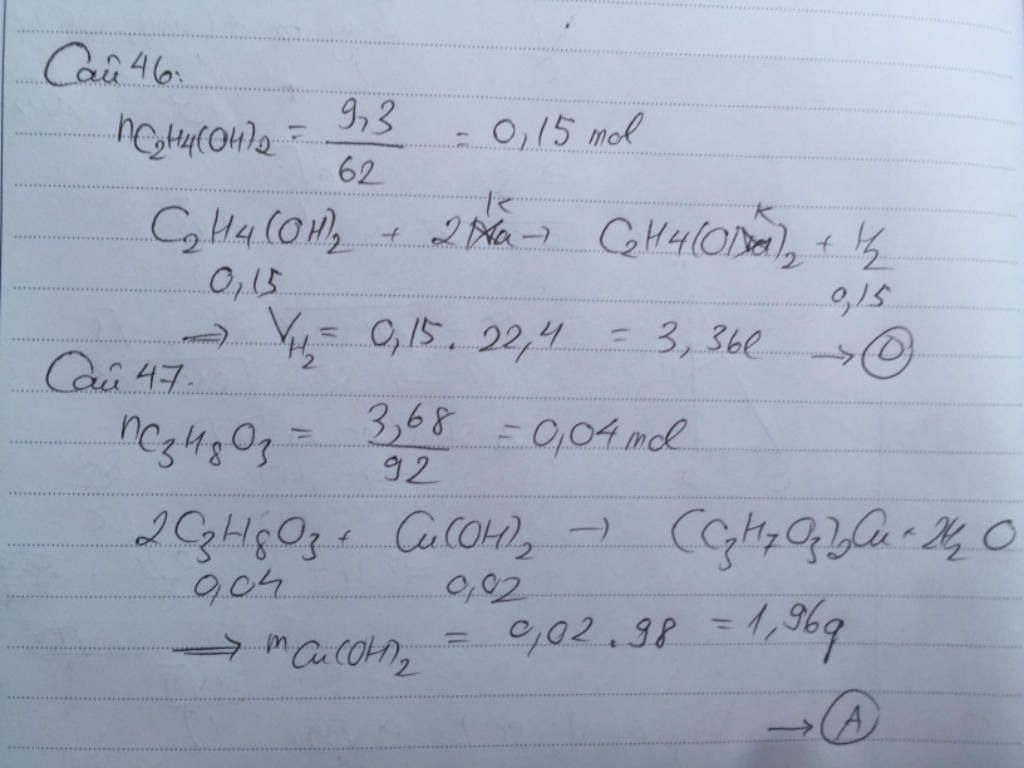 Câu 46:
nC₂H₄(OH)₂ = 9,3 / 62 = 0,15 mol
C₂H₄(OH)₂ + 2K → C₂H₄(OK)₂ + H₂
0,15 0,15
⇒ V_H₂ = 0,15 . 22,4 = 3,36l → D
Câu 47.
nC₃H₈O₃ = 3,68 / 92 = 0,04 mol
2C₃H₈O₃ + Cu(OH)₂ → (C₃H₇O₃)₂Cu + 2H₂O
0,04 0,02
⇒ mCu(OH)₂ = 0,02 . 98 = 1,96g
→ A